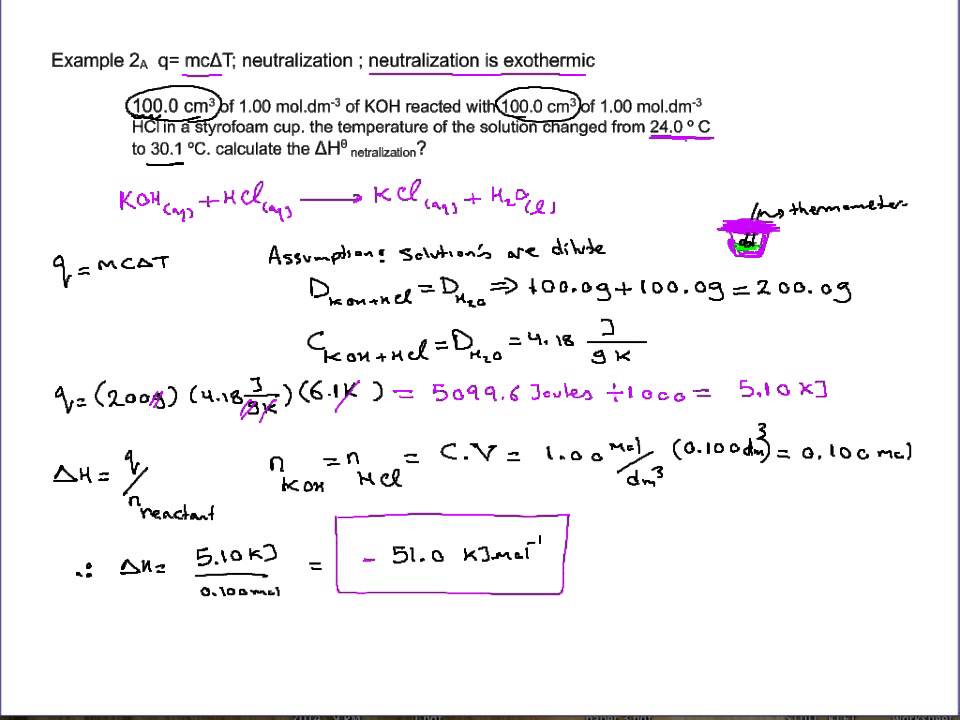 Example 2A q= mcΔT; neutralization ; neutralization is exothermic
100.0 cm³ of 1.00 mol.dm⁻³ of KOH reacted with 100.0 cm³ of 1.00 mol.dm⁻³
HCl in a styrofoam cup. the temperature of the solution changed from 24.0 º C
to 30.1 ºC. calculate the ΔHᶿ netralization?
KOH(aq) + HCl(aq) ⟶ KCl(aq) + H₂O(l)
thermometer
q = mcΔT
Assumption: solution's are dilute
D KOH+HCl = D H₂O => 100.0g + 100.0g = 200.0g
C KOH+HCl = D H₂O = 4.18 J/gK
q = (200g) (4.18 J/gK) (6.1K) = 5099.6 Joules ÷ 1000 = 5.10 KJ
ΔH = q/n reactant
n KOH = n HCl = C.V = 1.00 mol/dm³ (0.100dm³) = 0.100 mol
∴ ΔH = 5.10 KJ/0.100 mol = - 51.0 KJ.mol⁻¹